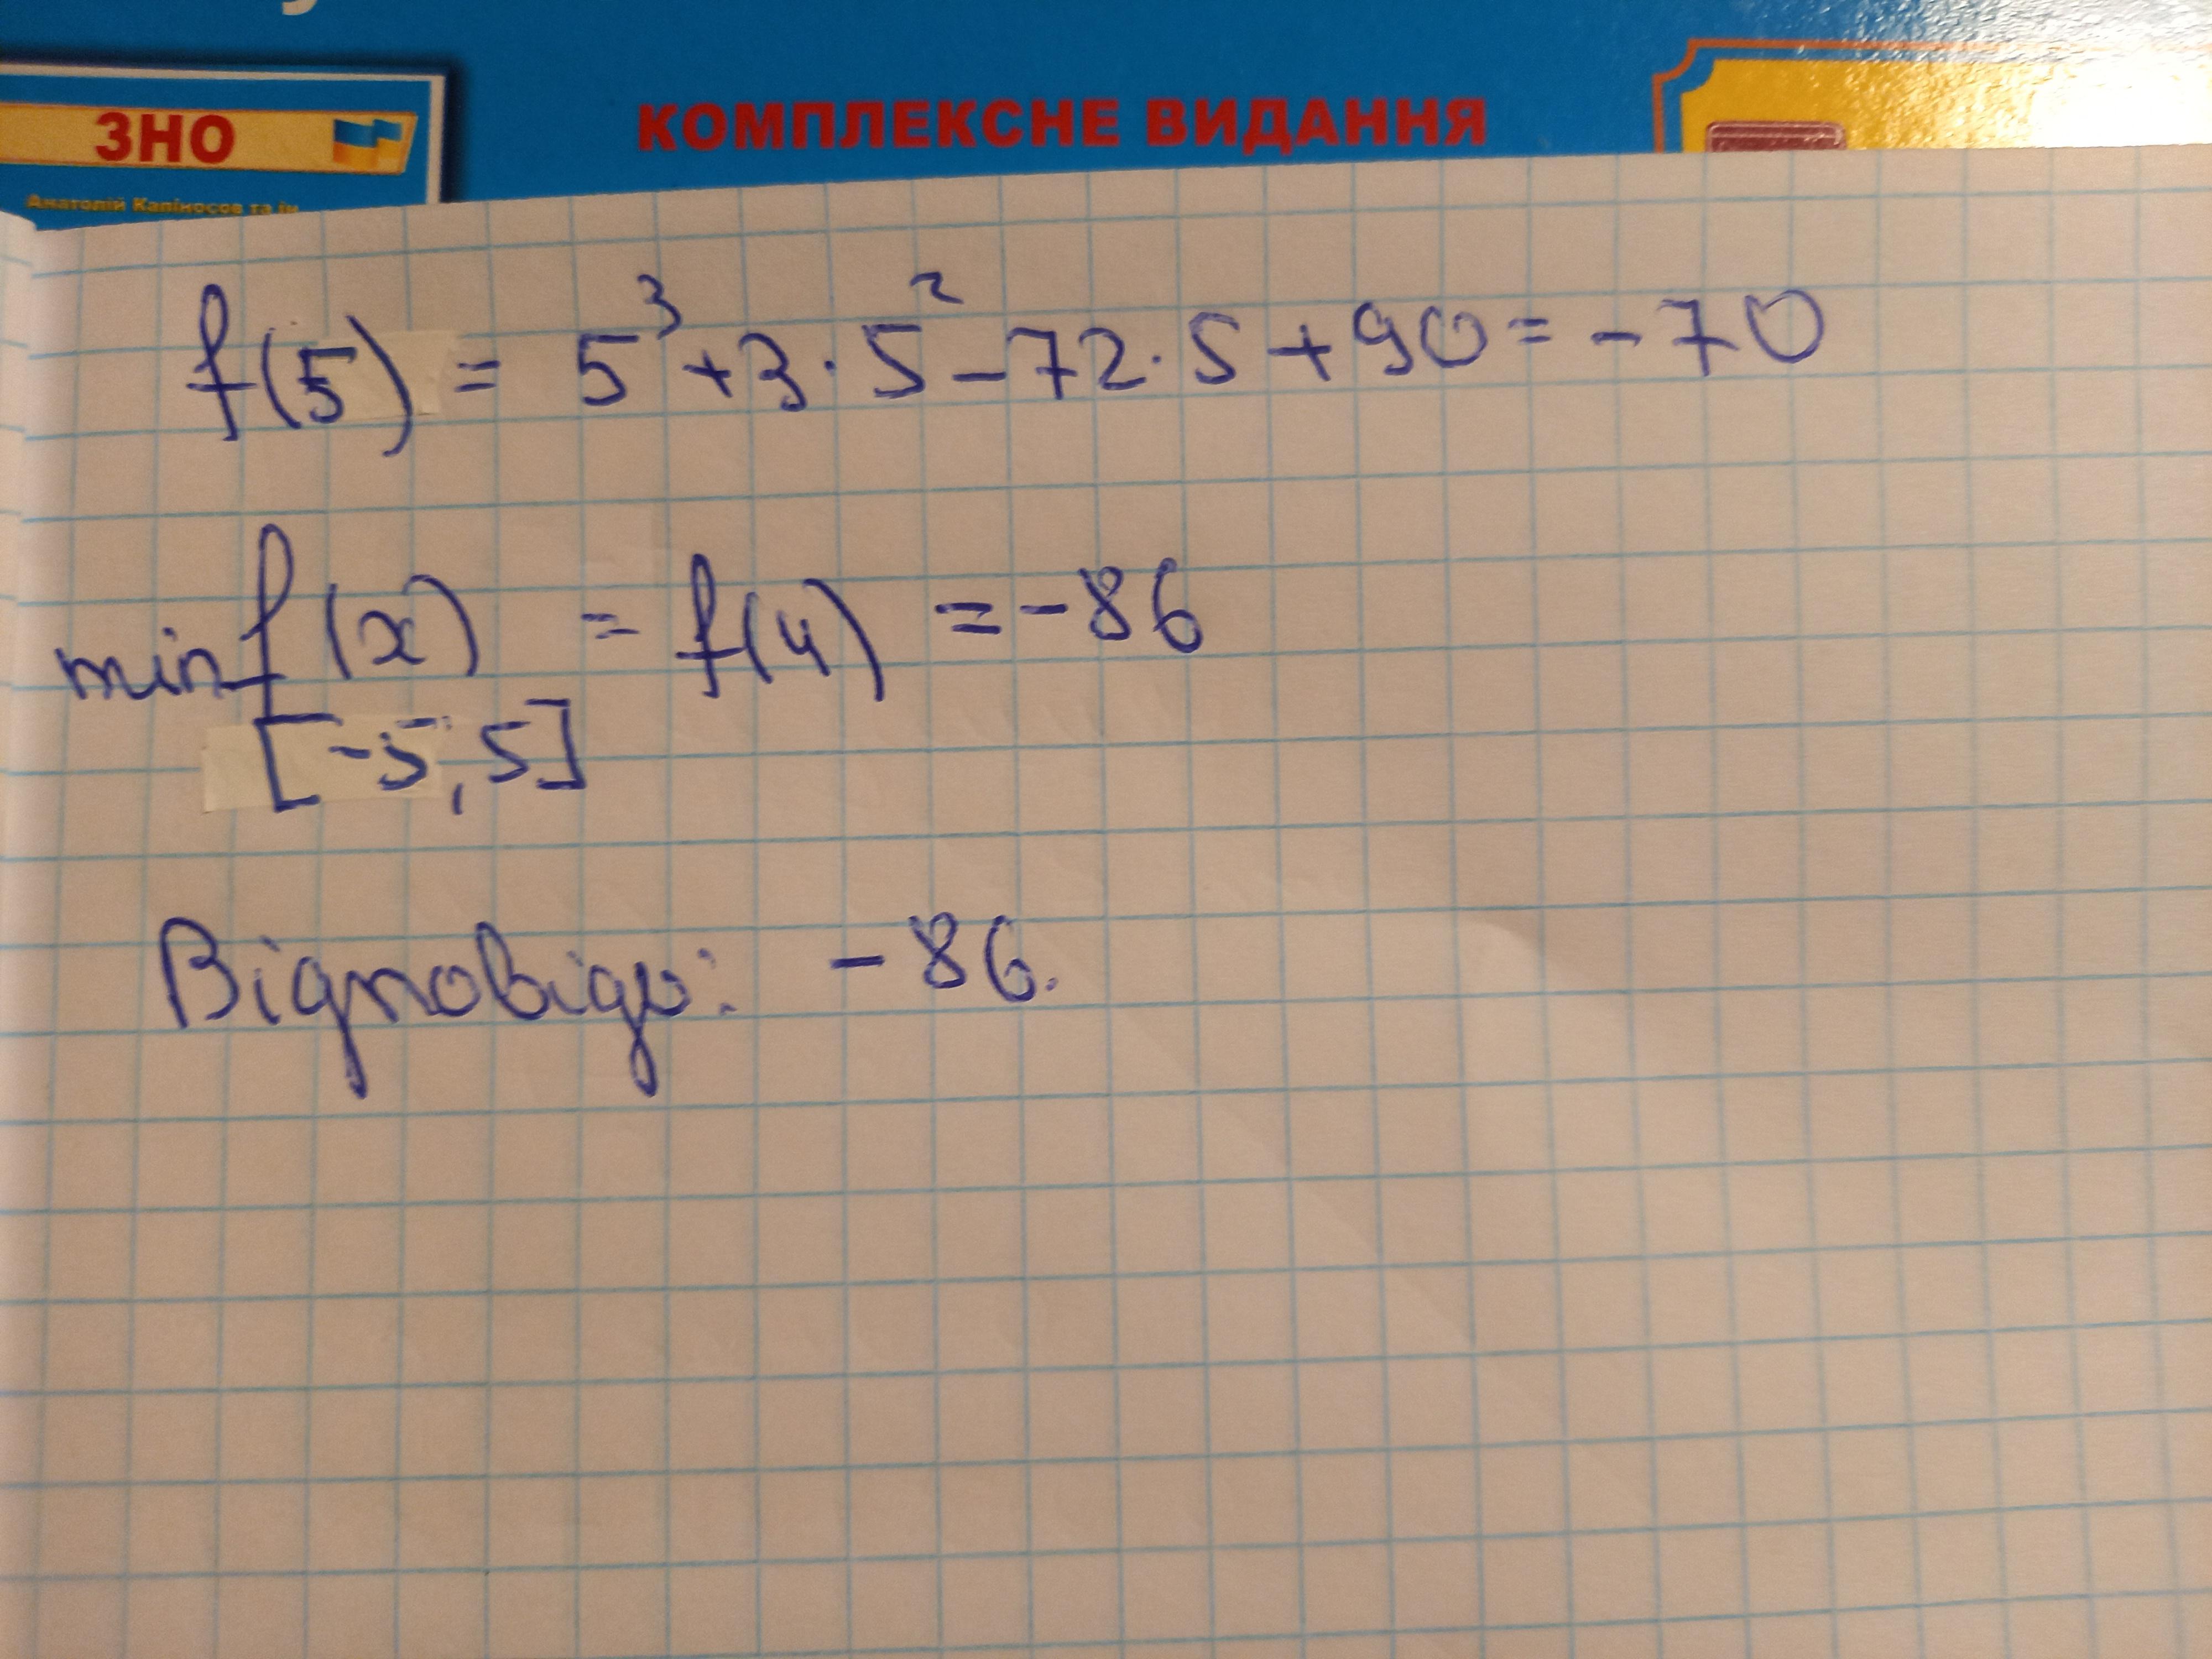 ЗНО
КОМПЛЕКСНЕ ВИДАННЯ
Анатолій Капіносов та ін
f(5) = 5³+3·5²-72·5+90=-70
min f(x) = f(4) =-86
[-5,5]
Відповідь: -86.